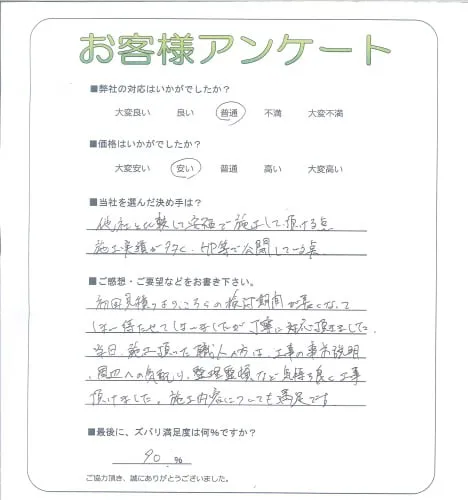 お客様アンケート
■弊社の対応はいかがでしたか?
大変良い 良い 普通 不満 大変不満
■価格はいかがでしたか?
大変安い 安い 普通 高い 大変高い
■当社を選んだ決め手は?
他社と比較して安価で施工して頂ける点
施工実績が多く、HP等で公開している点
■ご感想・ご要望などをお書き下さい。
初回見積りより、こちらの検討期間が長くなって
しまい待たせてしまいましたが丁寧に対応頂きました。
当日、施工頂いた職人の方は、工事の事前説明
、周辺への気配り、整理整頓など気持ち良く工事
頂けました。施工内容についても満足です
■最後に、ズバリ満足度は何%ですか?
90 %
ご協力頂き、誠にありがとうございました。